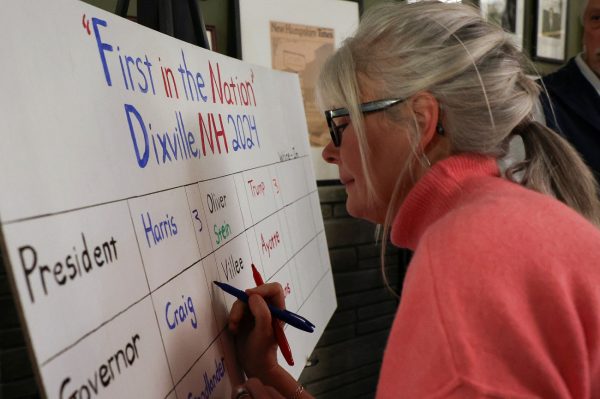 New Hampshire Times
"First in the Nation"
Dixville, NH 2024
Write-In
President Harris 3 Oliver Stein Trump 3
Governor Craig Villee Ayotte